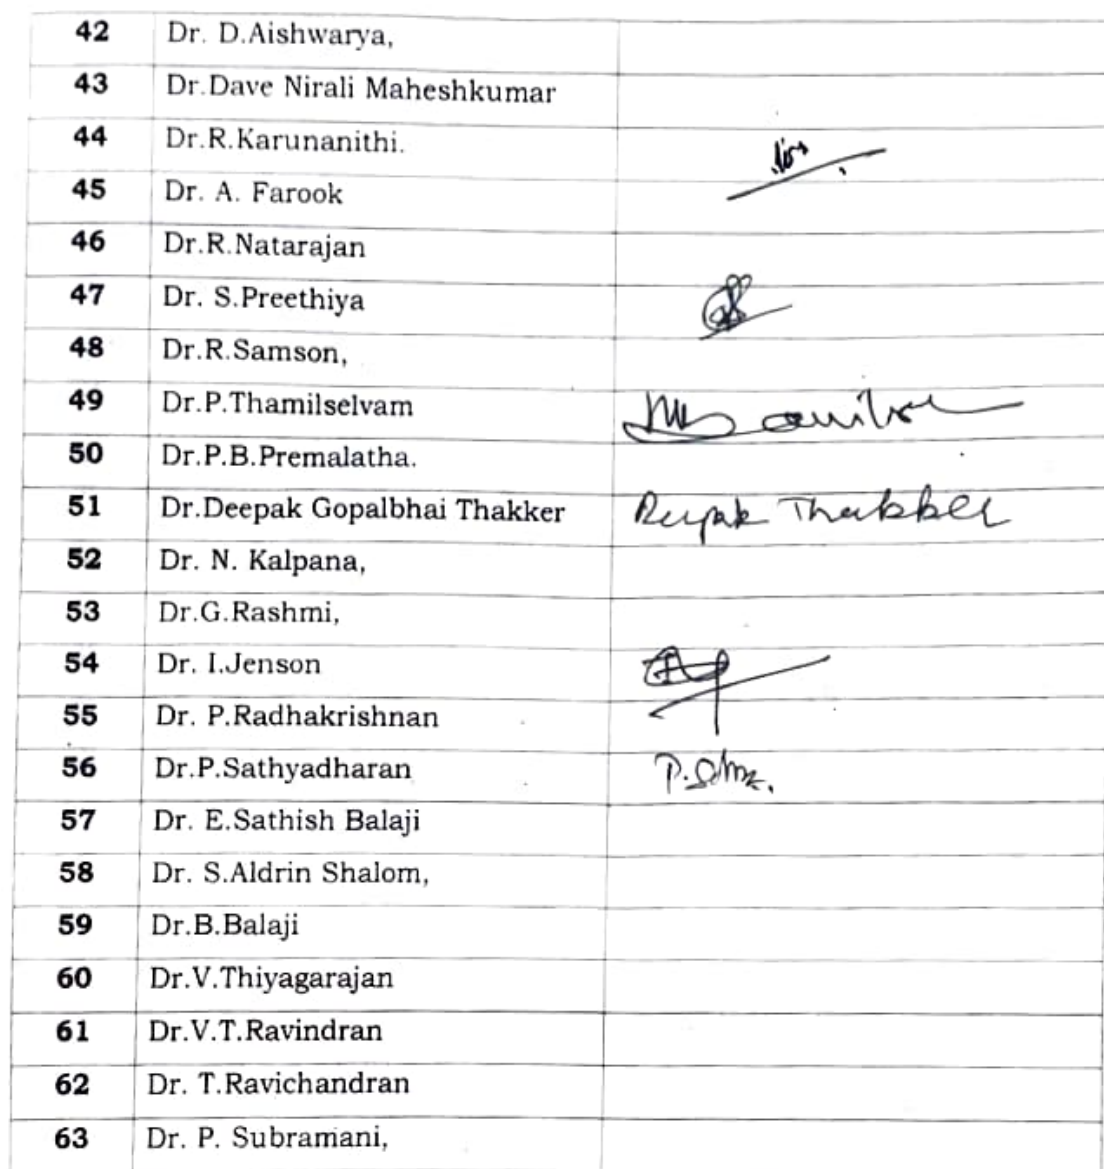 42 Dr. D.Aishwarya,
43 Dr.Dave Nirali Maheshkumar
44 Dr.R.Karunanithi.
45 Dr. A. Farook
46 Dr.R.Natarajan
47 Dr. S.Preethiya
48 Dr.R.Samson,
49 Dr.P.Thamilselvam
50 Dr.P.B.Premalatha.
51 Dr.Deepak Gopalbhai Thakker Deepak Thakker
52 Dr. N. Kalpana,
53 Dr.G.Rashmi,
54 Dr. I.Jenson
55 Dr. P.Radhakrishnan
56 Dr.P.Sathyadharan
57 Dr. E.Sathish Balaji
58 Dr. S.Aldrin Shalom,
59 Dr.B.Balaji
60 Dr.V.Thiyagarajan
61 Dr.V.T.Ravindran
62 Dr. T.Ravichandran
63 Dr. P. Subramani,